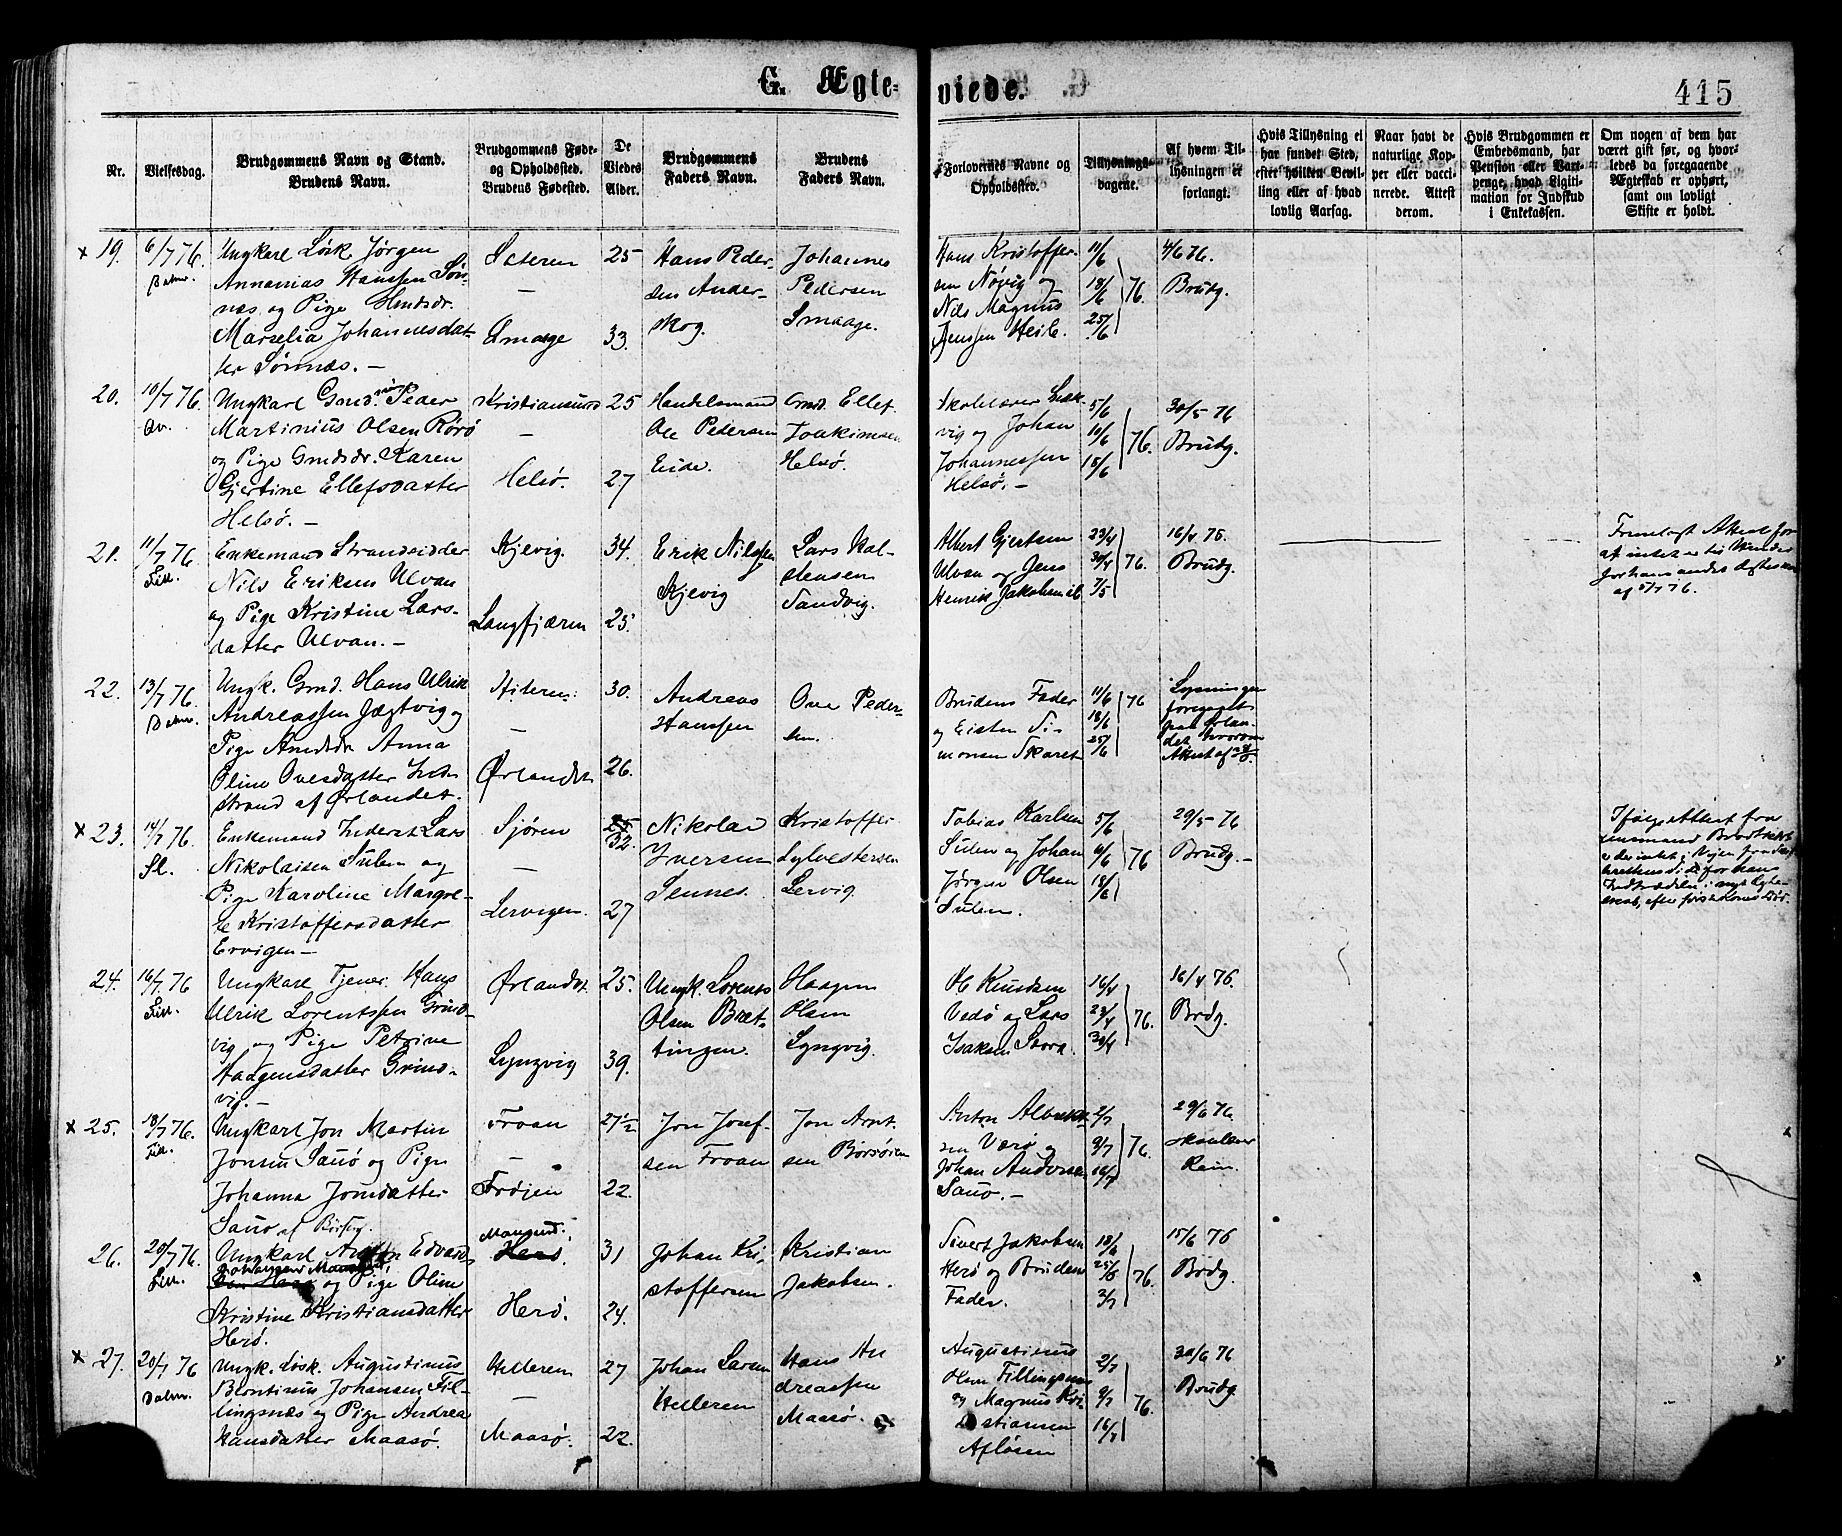 G. Ægte=
viede.
415
Nr.
Vielsesdag.
Brudgommens Navn og Stand.
Brudens Navn.
Brudgommens Føde-
og Opholdssted.
Brudens Fødested.
De
Viedes
Alder.
Brudgommens
Faders Navn.
Brudens
Faders Navn.
Forlovernes Navne og
Opholdssted.
Tillysnings-
dagene.
Af hvem Til-
lysningen er
forlangt.
Hvis Tillysning ei
har fundet Sted,
efter hvilken Bevil-
ling eller af hvad
lovlig Aarsag.
Naar havt de
naturlige Kop-
per eller vacci-
nerede. Attest
derom.
Hvis Brudgommen er
Embedsmand, har
Pension eller Vart-
penge, hvad Ligiti-
mation for Indskud
i Enkekassen.
Om nogen af dem har
været gift før, og hvor-
ledes da foregaaende
Ægteskab er ophørt,
samt om lovligt
Skifte er holdt.
x 19.
6/7 76.
Ungkarl Løsk Jørgen
Annanias Hanssen Sør-
næs og Pige
Marselia Johannesdat-
ter Sørnæs. —
Sæteren
—
Smaage
25
33.
Hans Peder-
sen Ander-
skog.
Johannes
Pedersen
Smaage.
Hans Kristoffer-
sen Nøvig og
Nils Magnus
Jenssen Heile.
11/6
18/6 76.
25/6
4/6 76.
Brudg.
20.
10/7 76.
Ungkarl Gmd. Peder
Martinius Olsen Rørø
og Pige Gmdsdr. Karen
Gjertine Ellefsdatter
Helsø. —
Kristiansund
—
Helsø.
25
27
Handelsmand
Ole Pedersen
Eide.
Gmd. Ellef
Joakimsen
Helsø.
Skolelærer
vig og Johan
Johannessen
Helsø. —
5/6
11/6 76.
18/6
30/5 76
Brudg.
21.
11/7 76
Fill.
Enkemand Strandsidder
Nils Eriksen Ulvan
og Pige Kristine Lars-
datter Ulvan. —
Kjevig.
Langfjæren
34.
25.
Erik Nilssen
Kjevig
Lars Hal-
stensen
Sandvig.
Albert Gjertsen
Ulvan og Jens
Henrik Jakobsen ib.
23/4
30/4 76.
7/5
16/4 76.
Brudg.
Fremlagt Attest for
at intet er til Hinder
for hans andet Ægteskab
22.
13/7 76.
Ungk. Gmd. Hans Ulrik
Andreassen Jægtvig og
Pige Gmdsdr Anna
Oline Ovesdatter
strand af Ørlandet.
Hiteren.
—
Ørlandet
30.
26.
Andreas
Hanssen
Ove Peder-
sen.
Brudens Fader
og Eisten Si-
monsen Skaret
11/6 76
18/6
25/6
Lysningen
foregaaet
paa Ørlan-
det hvorom
Attest af
x 23.
14/7 76.
Sl.
Enkemand Inderst Lars
Nikolaisen Sulen og
Pige Karoline Margre-
te Kristoffersdatter
Ervigen —
Sjøren
—
Lervigen
32.
27
Nikolai
Iversen
Sennes.
Kristoffer
Sylvestersen
Lervig
Tobias Karlsen
Sulen og Johan
Jørgen Olsen
Sulen.
5/6
11/6 76
18/6
29/5 76
Brudg. —
Ifølge Attest fra
er der intet i Vejen
for hans
Indtrædelse i nyt Ægte-
skab, efter første Kones Død.
24.
16/7 76
Fill.
Ungkarl Tjener Hans
Ulrik Lorentssen Grind-
vig og Pige Petrine
Haagensdatter Grind-
vig. —
Ørlandet.
Lyngvig
25.
39.
Ungk. Lorents
Olsen Bræt-
tingen.
Haagen
Olsen
Lyngvig.
Ol Knutsen
Vedø og Lars
Isaksen Storø.
16/4
23/4 76.
30/4
16/4 76.
Brdg.
x 25.
18/7 76.
Fill.
Ungkarl Jon Martin
Jonsen Sauø og Pige
Johanna Jonsdatter
Sauø af
Froan
—
Frøjen
27 1/2
22.
Jon Josef-
sen Froan
Jon Arnt-
sen Borsøren
Anton Albrekt-
sen Værø og
Johan Andersen
Sauø. —
2/7
9/7 76
16/7
29/6 76.
Skoulær
Rein.
26.
20/7 76.
Fill.
Ungkarl Anton Edvard
og Pige Oline
Kristine Kristiansdatter
Herø.
Herø.
31
24.
Johan Kri-
stoffersen
Kristian
Jakobsen.
Sivert Jakobsen
Herø og Brudens
Fader.
18/6
25/6 76.
2/7
15/6 76
Brdg.
x 27.
20/7 76
Ungk. Løsk. Augustinus
Blontinus Johansen Fil-
lingsnæs og Pige Andrea
Hansdatter Maasø.
Helleren
—
Maasø.
27
22.
Johan Larsen
Helleren
Hans An
dreassen
Maasø.
Augustinus
Olsen Fillingsnæs
og Magnus Kri-
stiansen
Afløsen
2/7
9/7 76.
16/7
30/6 76
Brudg.